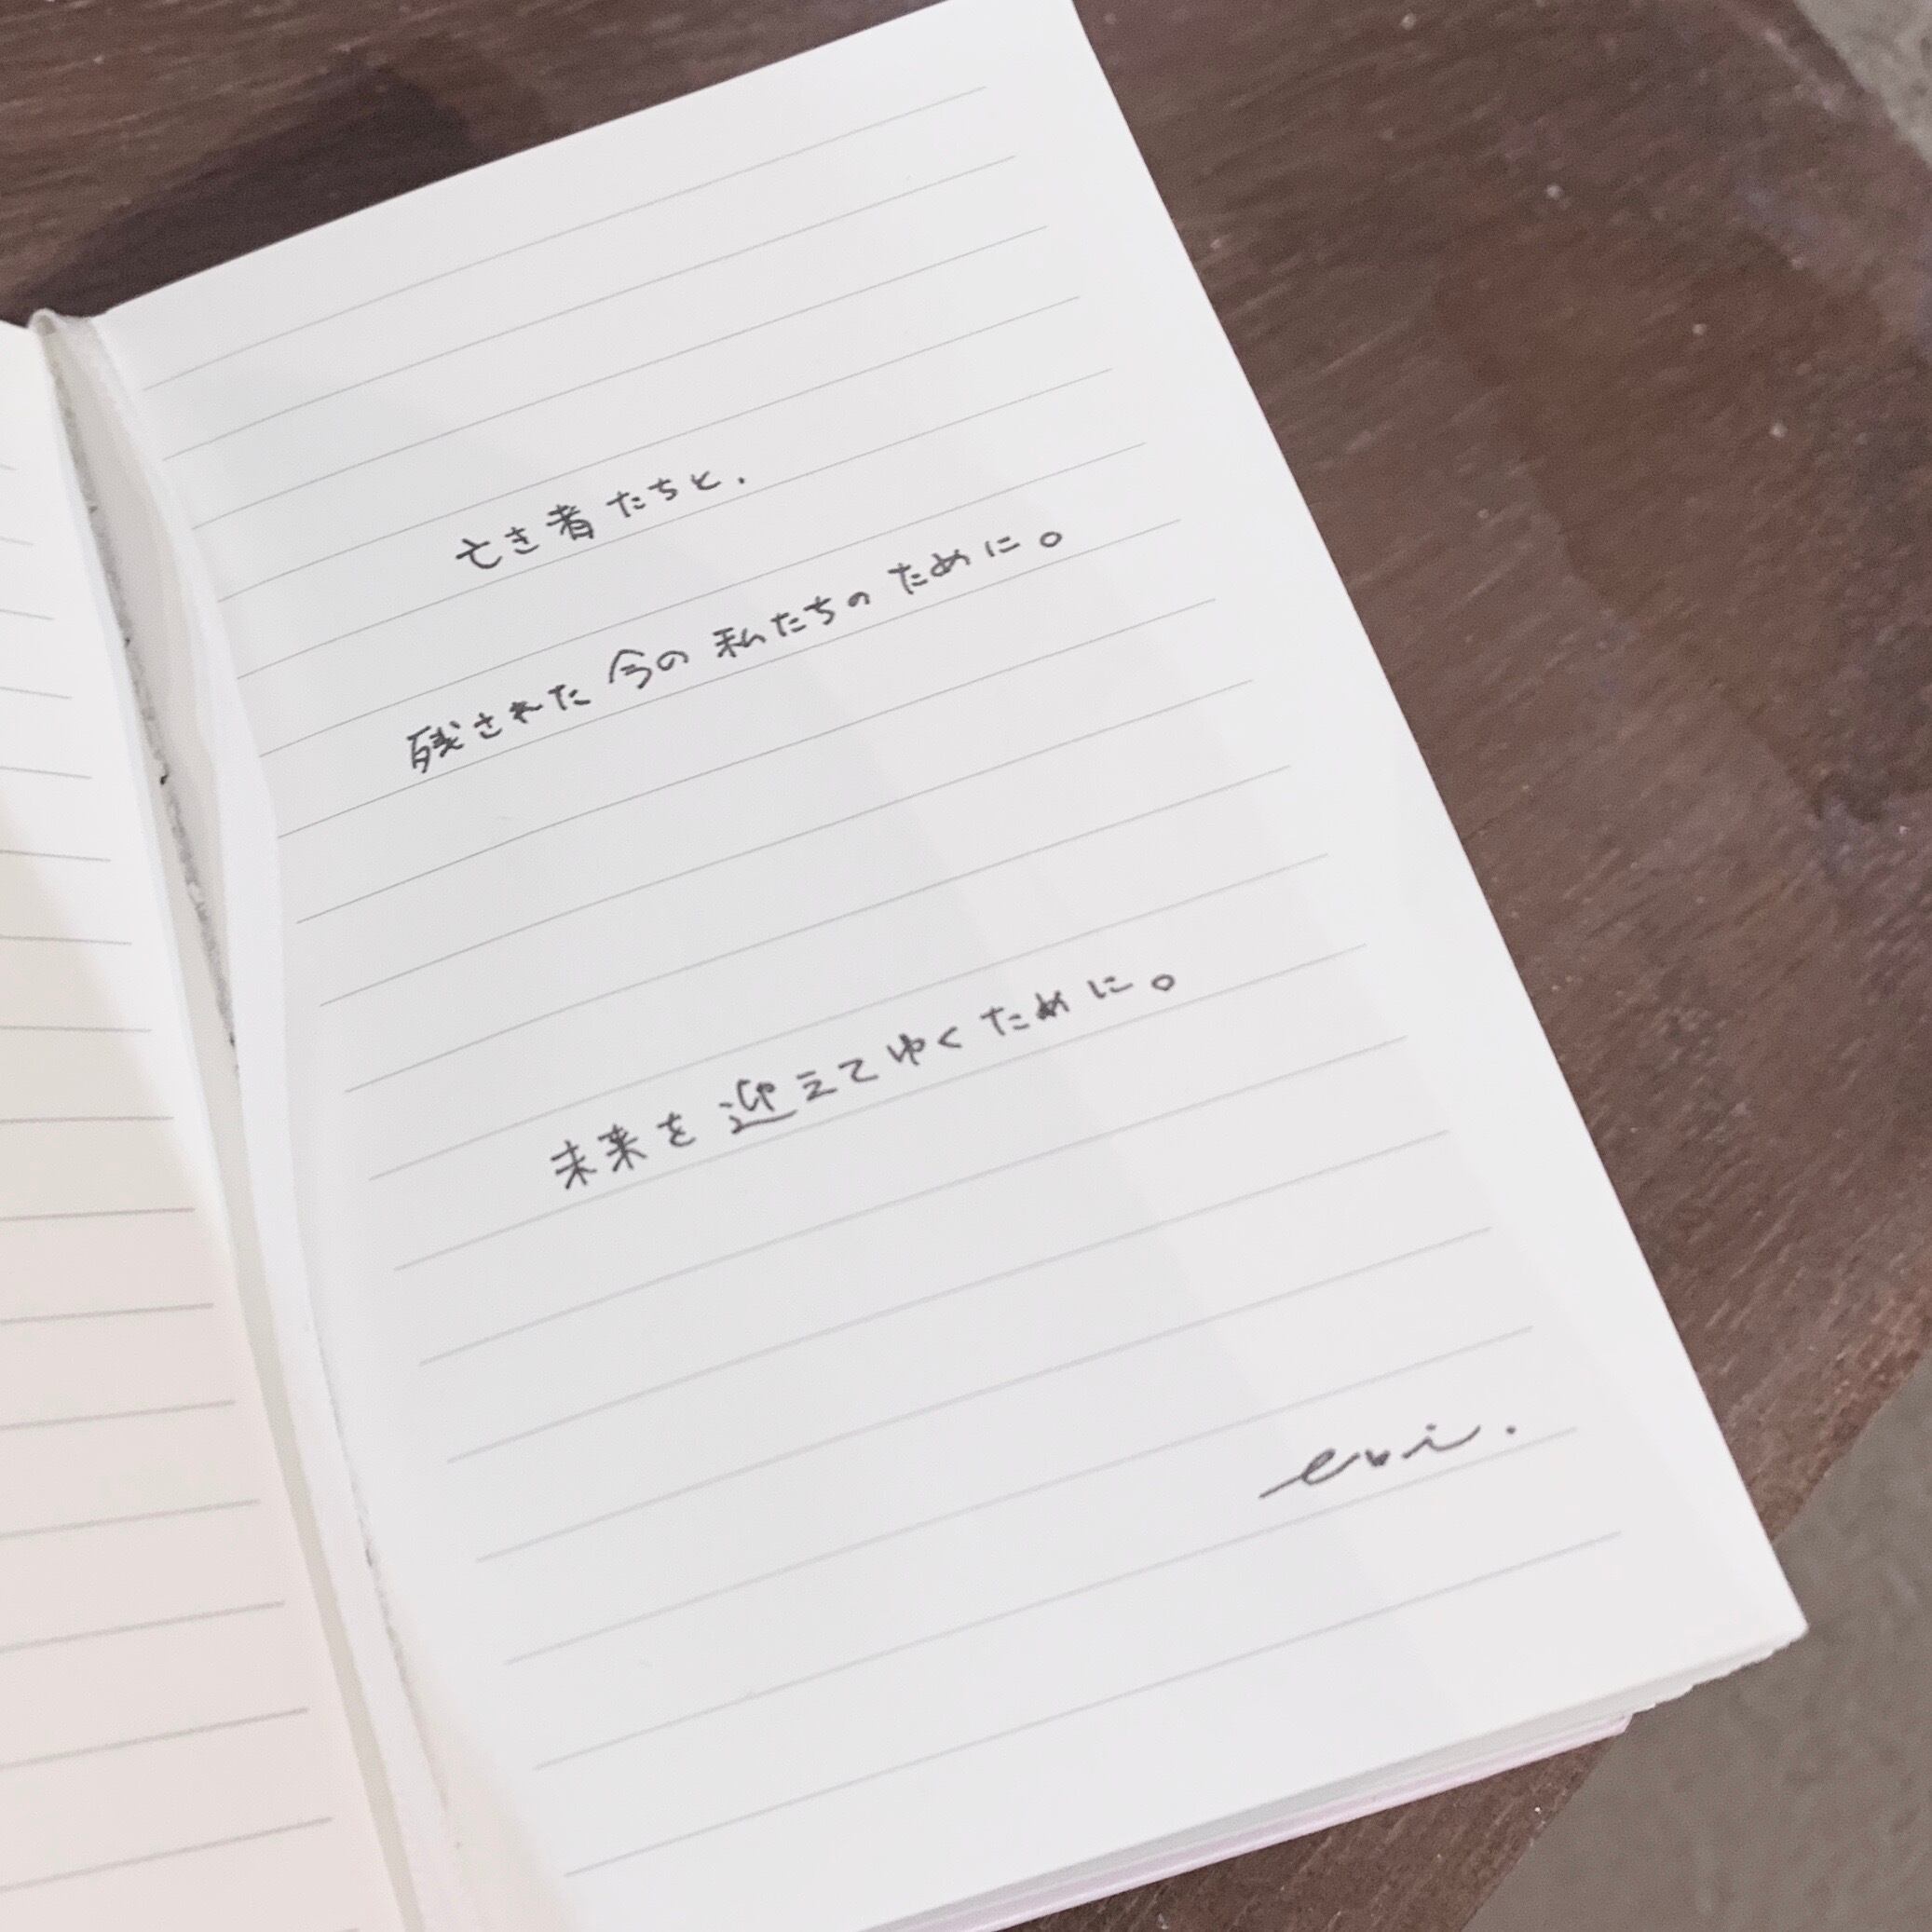 亡き者たちと、
残された今の私たちのために。
未来を迎えてゆくために。